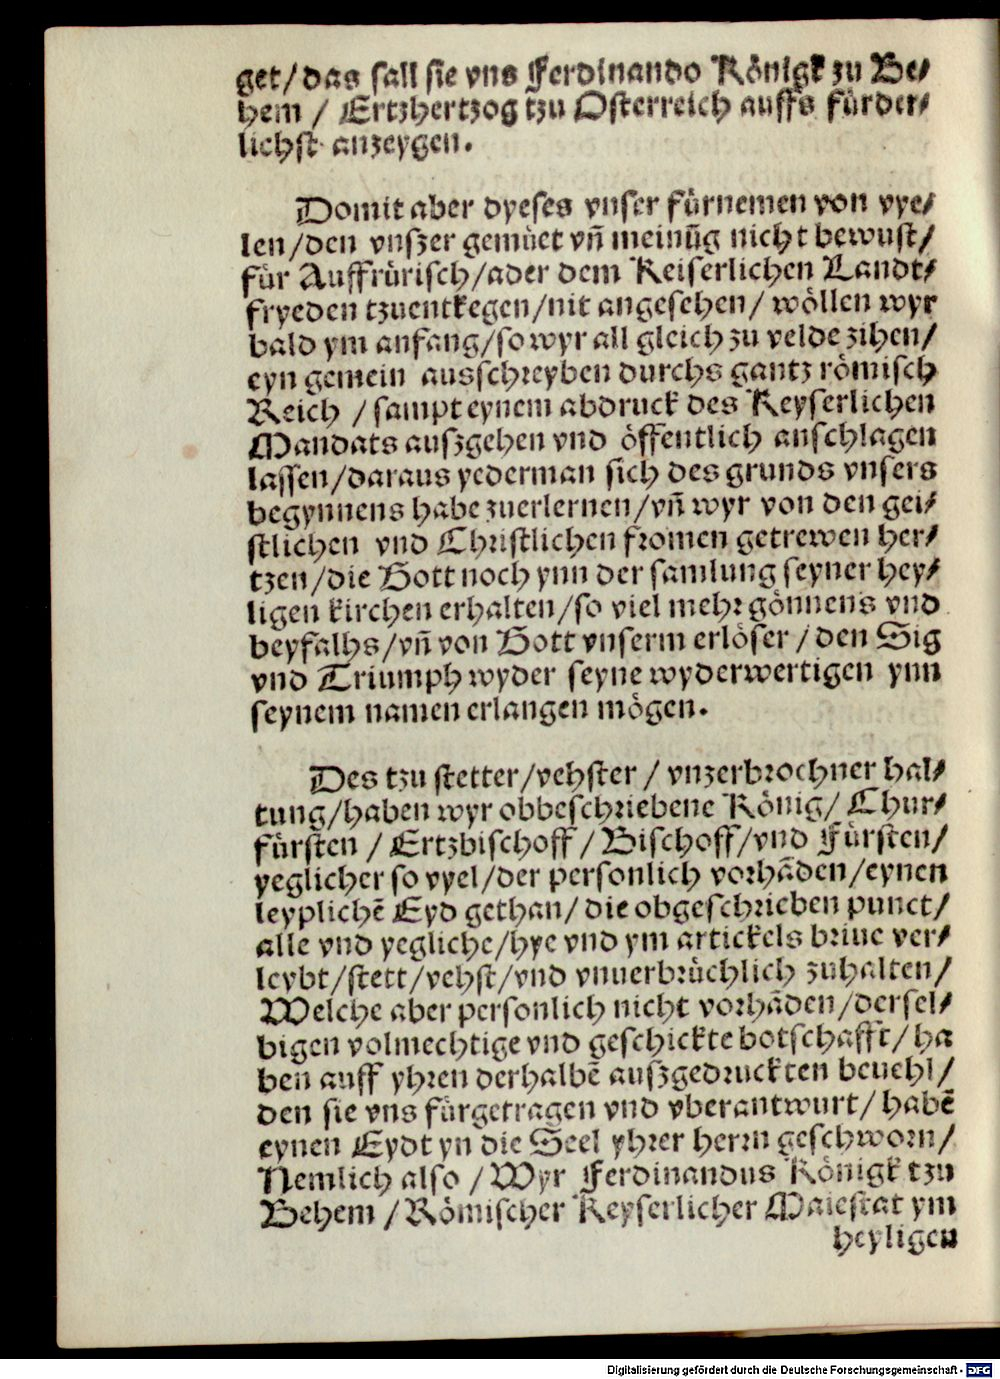 get/das sall sie vns Ferdinando Koͤnigk zu Be⸗
hem / Ertzhertzog tzu Osterreich auffs fuͤrder⸗
lichst anzeygen.
Domit aber dyeses vnser fuͤrnemen von vye⸗
len/den vnszer gemuͤet vñ meinūg nicht bewust/
fuͤr Auffruͤrisch/ader dem Keiserlichen Landt⸗
fryeden tzuentkegen/nit angesehen/ woͤllen wyr
bald ym anfang/so wyr all gleich zu velde zihen/
eyn gemein ausschreyben durchs gantz roͤmisch
Reich / sampt eynem abdruck des Keyserlichen
Mandats auszgehen vnd oͤffentlich anschlagen
lassen/daraus yederman sich des grunds vnsers
begynnens habe zuerlernen/vñ wyr von den gei⸗
stlichen vnd Christlichen fromen getrewen her⸗
tzen/die Gott noch ynn der samlung seyner hey⸗
ligen kirchen erhalten/so viel mehr goͤnnens vnd
beyfalhs/vñ von Gott vnserm erloͤser/den Sig
vnd Triumph wyder seyne wyderwertigen ynn
seynem namen erlangen moͤgen.
Des tzu stetter/vehster / vnzerbrochner hal⸗
tung/haben wyr obbeschriebene Koͤnig/ Chur⸗
fuͤrsten / Ertzbischoff/ Bischoff/vnd Fuͤrsten/
yeglicher so vyel/der personlich vorhāden/eynen
leyplichē Eyd gethan/ die obgeschrieben punct/
alle vnd yegliche/hye vnd ym artickels briue ver⸗
leybt/stett/vehst/vnd vnuerbruͤchlich zuhalten/
Welche aber personlich nicht vorhāden/dersel⸗
bigen volmechtige vnd geschickte botschafft/ ha
ben auff yhren derhalbē auszgedruckten beuehl/
den sie vns fuͤrgetragen vnd vberantwurt/ habē
eynen Eydt yn die Seel yhrer herrn geschworn/
Nemlich also / Wyr Ferdinandus Koͤnigk tzu
Behem / Roͤmischer Keyserlicher Maiestat ym
heyligen
Digitalisierung gefördert durch die Deutsche Forschungsgemeinschaft - DFG